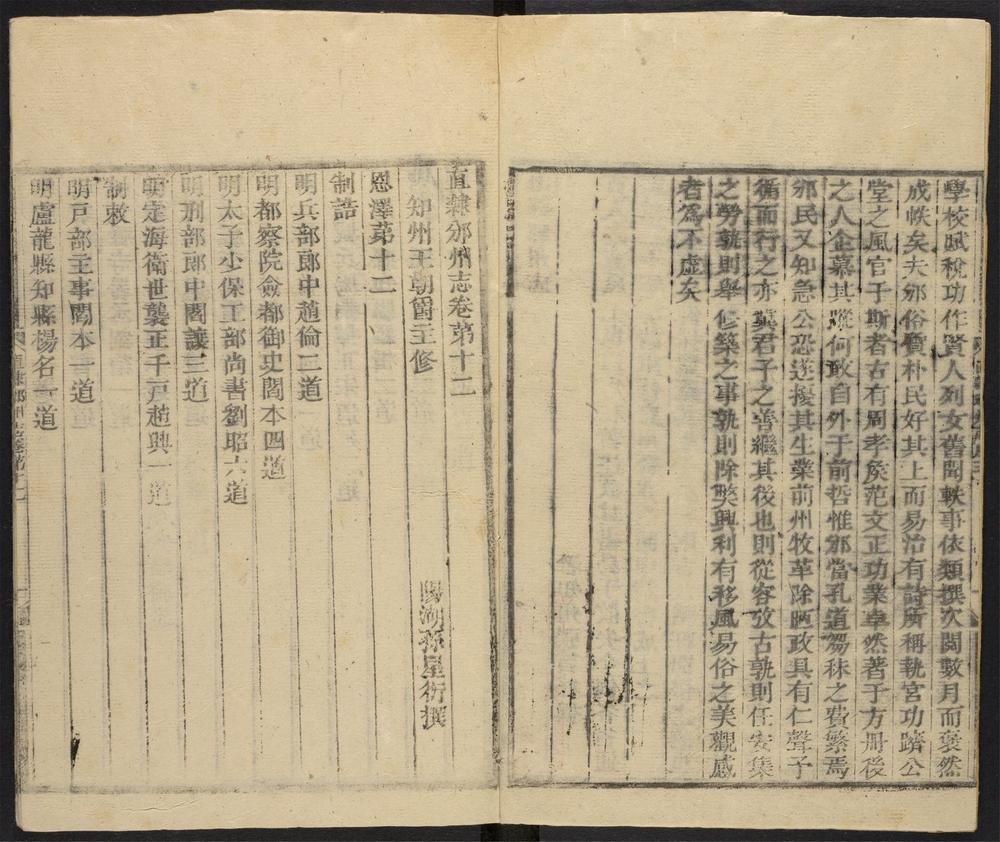 學校賦稅功作賢人列女舊聞軼事依類撰次閱數月而裒然
成帙矣夫邠俗質朴民好其上而易治有詩所稱執宮功躋公
堂之風官于斯者古有周孝矦范文正功業卓然著于方冊後
之人企慕其蹤何敢自外于前哲惟邠當孔道芻秣之費繁焉
邠民又知急公恐遂擾其生業前州牧革除陋政具有仁聲子
循而行之亦冀君子之善繼其後也則從容攷古孰則任安集
之勞孰則舉修築之事孰則除獘興利有移風易俗之美觀感
者爲不虛矣
直隸邠州志卷第十二
知州王朝爵主修
陽湖孫星衍撰
恩澤苐十二
制誥
明兵部郞中趙倫二道
明都察院僉都御史閻本四道
明太子少保工部尚書劉昭六道
明刑部郎中閻讓三道
明定海衛世襲正千戸趙興一道
制敕
明戸部主事閻本一道
明盧龍縣知縣楊名一道